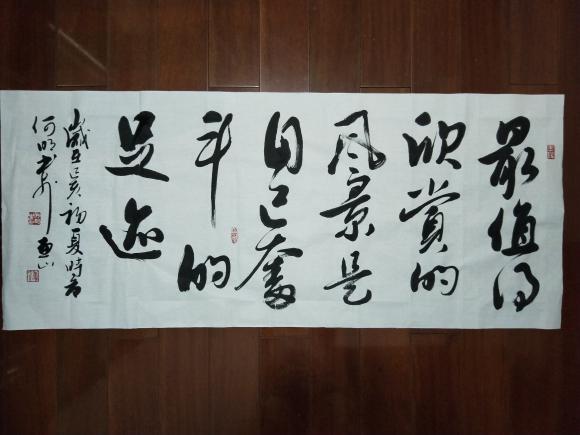 最值得
欣赏的
风景是
自己奋
斗的
足迹
歲在己亥初夏時
何明书于山